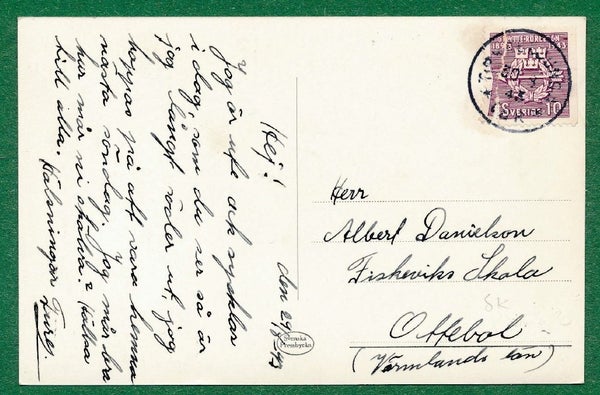 Hej!
Jag är ute och cyklar
i dag, som du ser så är
jag långt söder ut, jag
hoppas på att vara hemma
nästa söndag. Jag mår bra
hur mår ni själva? Hälsa
till alla. Hälsningar Ture.
den 29/7 43
Svenska
Pressbyrån
1893 1943
SVERIGE 10
Herr
Albert Danielson
Fiskeviks Skola
SK
Ottebol
(Värmlands län)